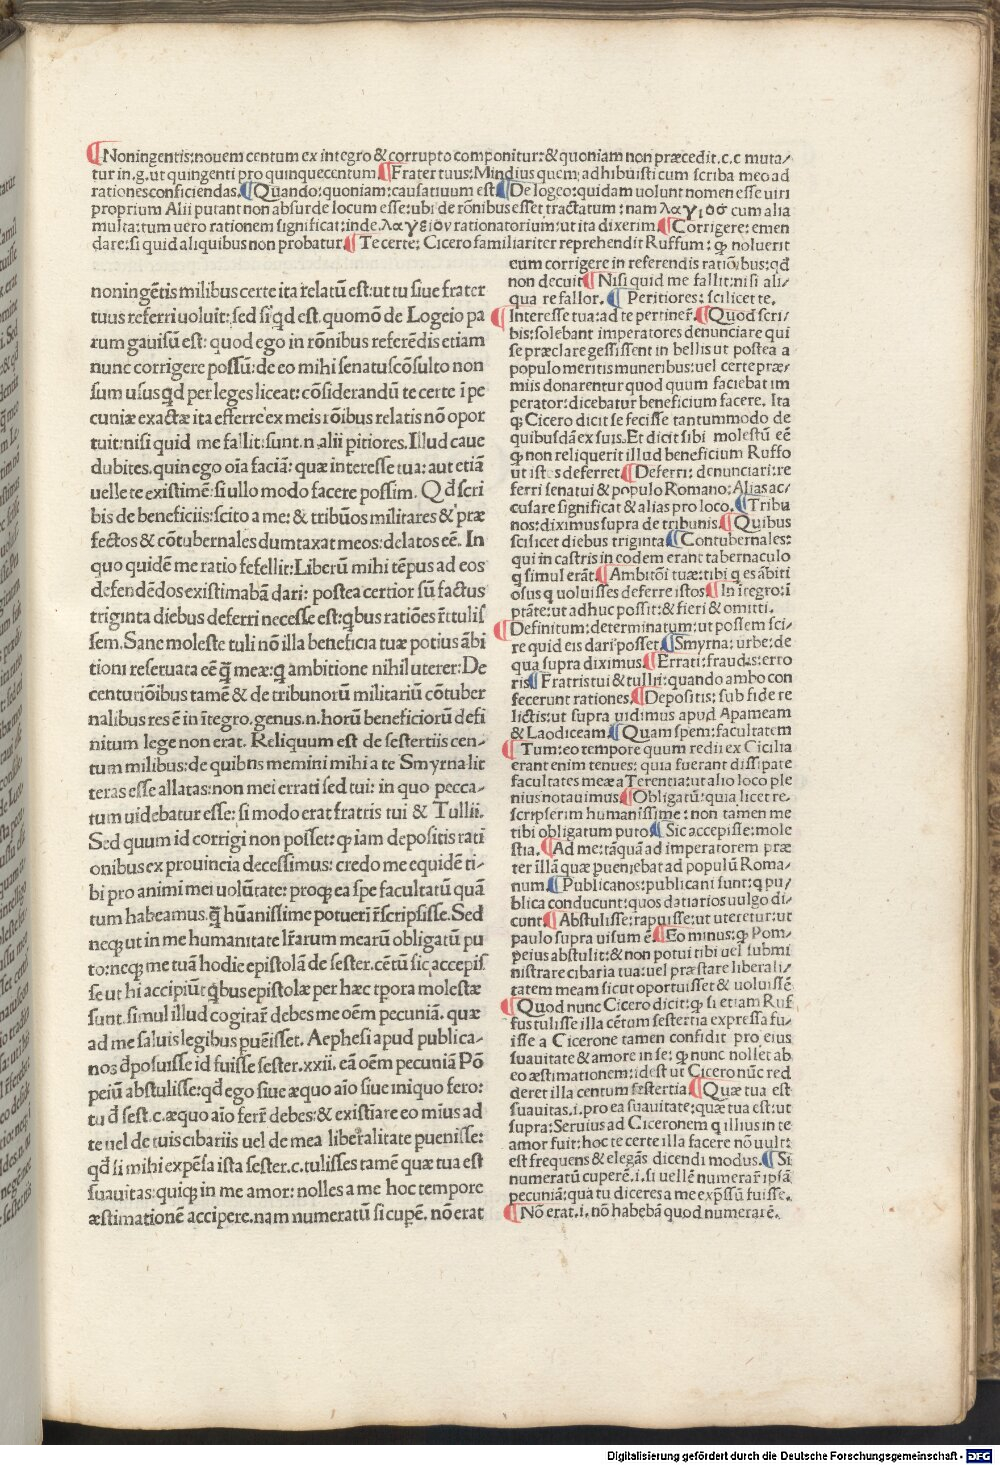 ¶Noningentis:nouem centum ex integro & corrupto componitur:& quoniam non præcedit.c.c muta/
tur in.g.ut quingenti pro quinquecentum ¶Frater tuus:Mindius quem adhibuisti cum scriba meo ad
rationes conficiendas.¶Quando:quoniam:causatiuum est¶De logeo:quidam uolunt nomen esse uiri
proprium Alii putant non absurde locum esse:ubi de rōnibus esset tractatum:nam λαγιοσ cum alia
multa:tum uero rationem significat:inde.λαγειον rationatorium:ut ita dixerim.¶Corrigere:emen
dare:si quid aliquibus non probatur.¶Te certe: Cicero familiariter reprehendit Ruffum: ꝙ noluerit
noningētis milibus certe ita relatū est:ut tu siue frater
tuus referri uoluit:sed si qd est.quomō de Logeio pa
rum gauisū est: quod ego in rōnibus referēdis etiam
nunc corrigere possū:de eo mihi senatuscōsulto non
sum usus qd per leges liceat:cōsiderandū te certe ī pe
cuniæ exactæ ita efferre ex meis rōibus relatis nō opor
tuit:nisi quid me fallit:sunt.n.alii pitiores.Illud caue
dubites.quin ego oīa faciā: quæ interesse tua: aut etiā
uelle te existimē:si ullo modo facere possim. Qd scri
bis de beneficiis:scito a me: & tribūos militares & præ
fectos & cōtubernales dumtaxat meos:delatos eē. In
quo quidē me ratio fefellit:Liberū mihi tēpus ad eos
defendēdos existimabā dari: postea certior sū factus
triginta diebus deferri necesse est:qbus ratiões rētulis
sem.Sane moleste tuli nō illa beneficia tuæ potius ābi
tioni reseruata eē ꝗ̄ meæ:ꝗ ambitione nihil uterer:De
centuriōibus tamē & de tribunorū militariū cōtuber
nalibus res ē in ītegro.genus.n.horū beneficiorū defi
nitum lege non erat. Reliquum est de sestertiis cen-
tum milibus:de quibns memini mihi a te Smyrna lit
teras esse allatas:non mei errati sed tui: in quo pecca-
tum uidebatur esse: si modo erat fratris tui & Tullii.
Sed quum id corrigi non posset: ꝙ iam depositis rati
onibus ex prouincia decessimus: credo me equidē ti-
bi pro animi mei uolūtate: proqꝫ ea spe facultatū quā
tum habeamus.ꝗ̄ hūanissime potuerī r̄scripsisse.Sed
neqꝫ ut in me humanitate lr̄arum mearū obligatū pu
to:neqꝫ me tuā hodie epistolā de sester.cētū sic accepis
se ut hi accipiūt qbus epistolæ per hæc tpora molestæ
sunt.simul illud cogitar̄ debes me oēm pecuniā. quæ
ad me saluis legibus puēisset. Aephesi apud publica-
nos dposuisse id fuisse sester.xxii. eā oēm pecuniā Pō
peiū abstulisse:qd ego siue æquo aīo siue iniquo fero:
tu d sest.c.æquo aīo ferr̄ debes:& existīare eo mīus ad
te uel de tuis cibariis uel de mea liberalitate puenisse:
qd si mihi expēsa ista sester.c.tulisses tamē quæ tua est
suauitas:quiqꝫ in me amor: nolles a me hoc tempore
æstimationē accipere.nam numeratū si cupē. nō erat
eum corrigere in referendis ratiōibus:qd
non decuit¶Nisi quid me fallit:nisi ali-
qua re fallor. ¶ Peritiores: scilicet te.
¶Interesse tua:ad te pertiner̄.¶Quod scri-
bis:solebant imperatores denunciare qui
se præclare gessissent in bellis ut postea a
populo meritis muneribus:uel certe præ/
miis donarentur quod quum faciebat im
perator:dicebatur beneficium facere. Ita
qꝫ Cicero dicit se fecisse tantummodo de
quibusdā ex suis.Et dicit sibi molestū eē
ꝙ non reliquerit illud beneficium Ruffo
ut istos deferret.¶Deferri: denunciari:re
ferri senatui & populo Romano: Alias ac/
cusare significat & alias pro loco.¶Tribu
nos:diximus supra de tribunis.¶Quibus
scilicet diebus triginta.¶Contubernales:
qui in castris in eodem erant tabernaculo
ꝗ simul erāt¶Ambitōi tuæ:tibi ꝗ es ābiti
osus ꝗ uoluisses deferre istos¶In ītegro:ī
ptāte:ut adhuc possit:& fieri & omitti.
¶Definitum:determinatum:ut possem sci/
re quid eis dari posset.¶Smyrna: urbe:de
qua supra diximus.¶Errati:fraudis:erro
ris¶Fratris tui & tullii:quando ambo con
fecerunt rationes.¶Depositis: sub fide re
lictis:ut supra uidimus apud Apameam
& Laodiceam.¶Quam spem:facultatem
¶Tum:eo tempore quum redii ex Cicilia
erant enim tenues: quia fuerant dissipate
facultates meæ a Terentia:ut alio loco ple
nius notauimus.¶Obligatū:quia licet re/
scripserim humanissime: non tamen me
tibi obligatum puto¶Sic accepisse:mole
stia.¶Ad me:tāquā ad imperatorem præ
ter illā quæ pueniebat ad populū Roma/
num.¶Publicanos:publicani sunt:ꝗ pu/
blica conducunt:quos datiarios uulgo di/
cunt¶Abstulisse:rapuisse:ut uteretur:ut
paulo supra uisum ē.¶Eo minus:ꝙ Pom/
peius abstulit:& non potui tibi uel submi
nistrare cibaria tua:uel præstare liberali/
tatem meam sicut oportuisset & uoluissē
¶Quod nunc Cicero dicit:ꝙ si etiam Ruf
fus tulisse illa cētum sestertia expressa fu/
isse a Cicerone tamen confidit pro eius
suauitate & amore in se: ꝙ nunc nollet ab
eo æstimationem:idest ut Cicero nūc red
deret illa centum sestertia.¶Quæ tua est
suauitas.i.pro ea suauitate:quæ tua est:ut
supra:Seruius ad Ciceronem ꝗ illius in te
amor fuit:hoc te certe illa facere nō uult:
est frequens & elegās dicendi modus.¶Si
numeratū cuperē.i.si uellē numerar̄ ipsā
pecuniā:qua tu diceres a me exp̄ssū fuisse.
¶Nō erat.i.nō habebā quod numerarē.
Digitalisierung gefördert durch die Deutsche Forschungsgemeinschaft - DFG